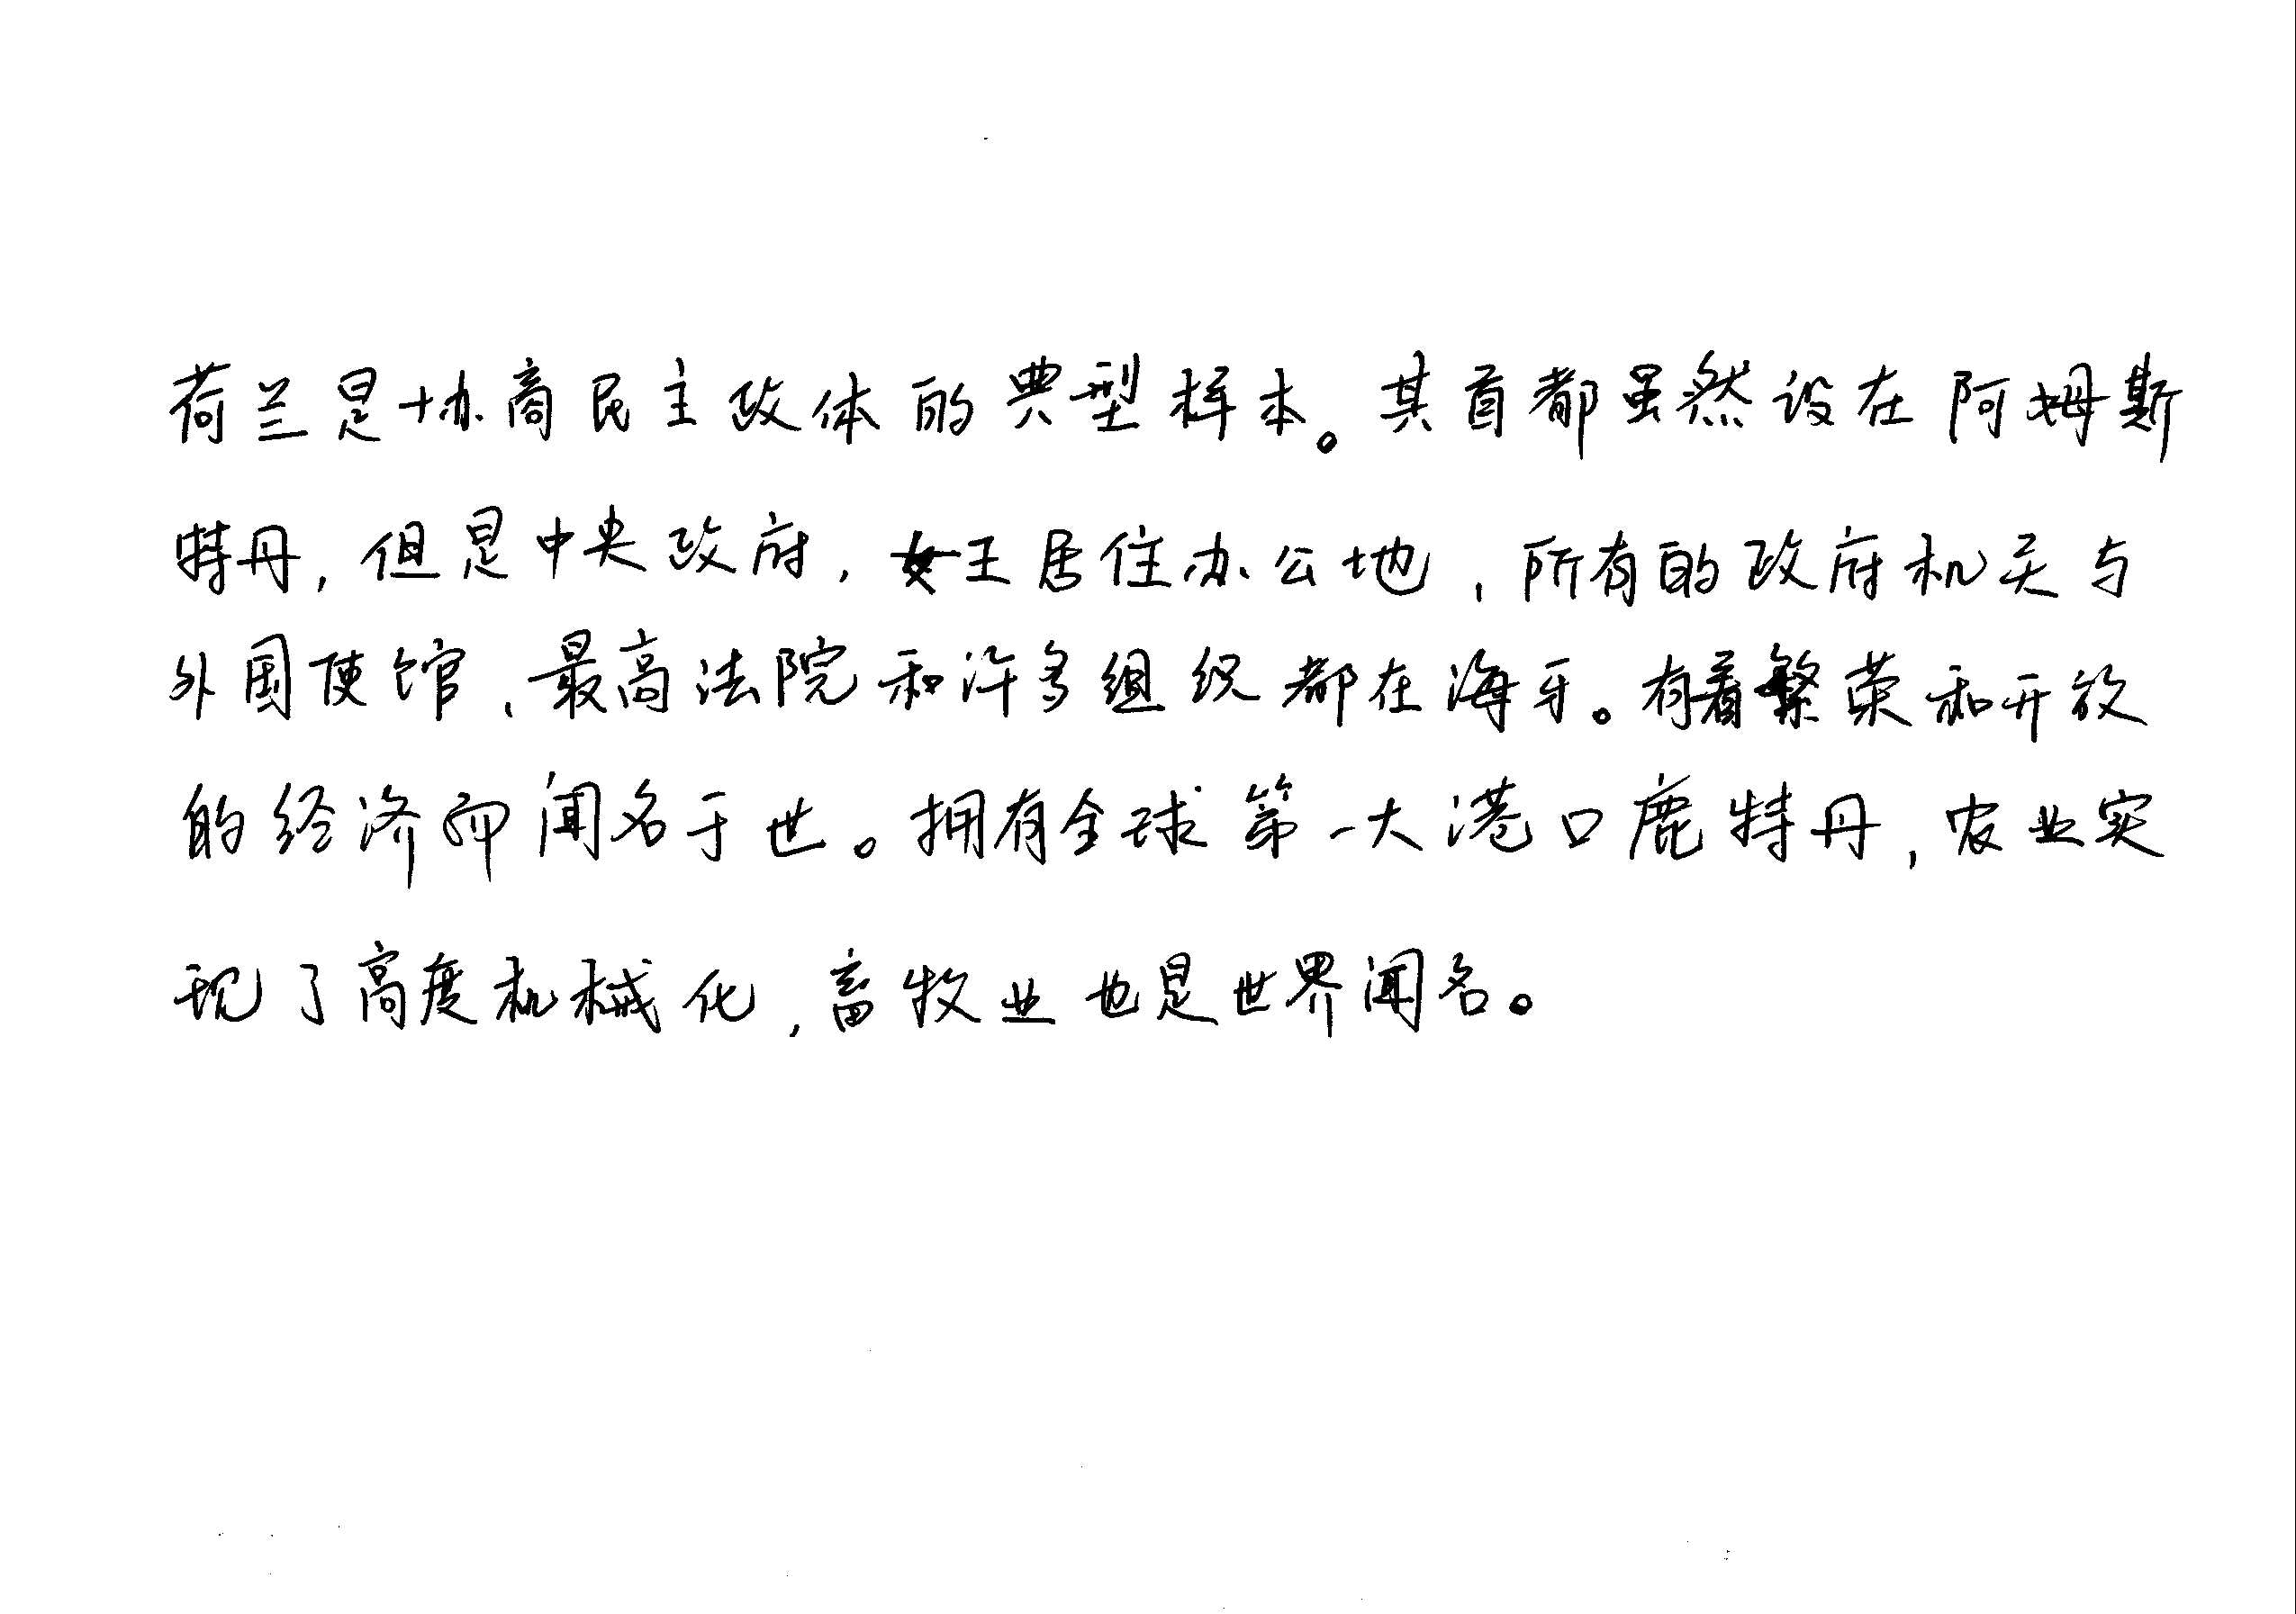 荷兰是协商民主政体的典型样本。其首都虽然设在阿姆斯
特丹，但是中央政府，女王居住办公地，所有的政府机关与
外国使馆、最高法院和许多组织都在海牙。有着繁荣和开放
的经济而闻名于世。拥有全球第一大港口鹿特丹，农业实
现了高度机械化，畜牧业也是世界闻名。